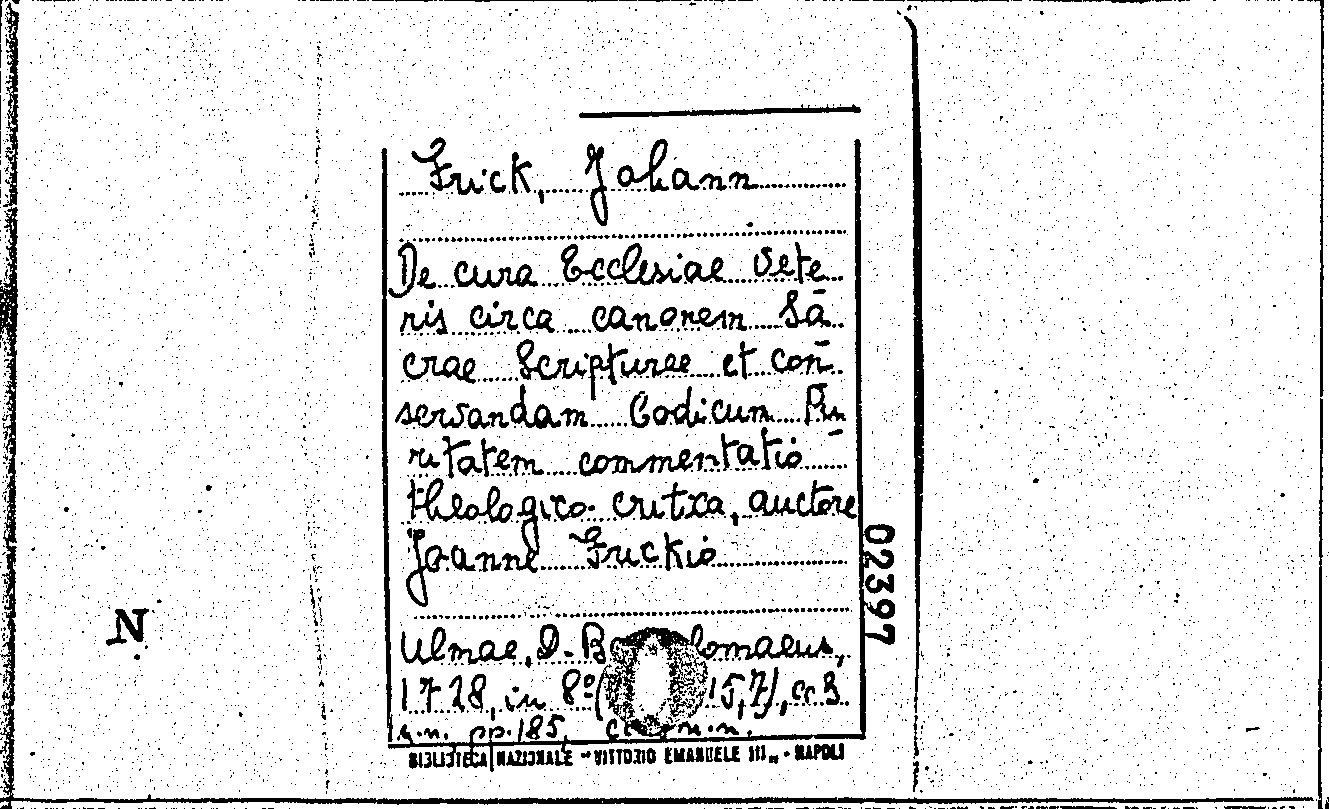 Frick, Johann
De cura Ecclesiae Vete-
ris circa canonem Sa-
crae Scripturae et con-
servandam Codicum Pu-
ritatem commentatio
theologico-critica, auctore
Joanne Frickio
Ulmae, D. Ba lomaeus,
1728, in 8º ( 15,7), cc 3
n.n. pp. 185, n.n.
BIBLIOTECA NAZIONALE "VITTORIO EMANUELE III" - NAPOLI
02397
N